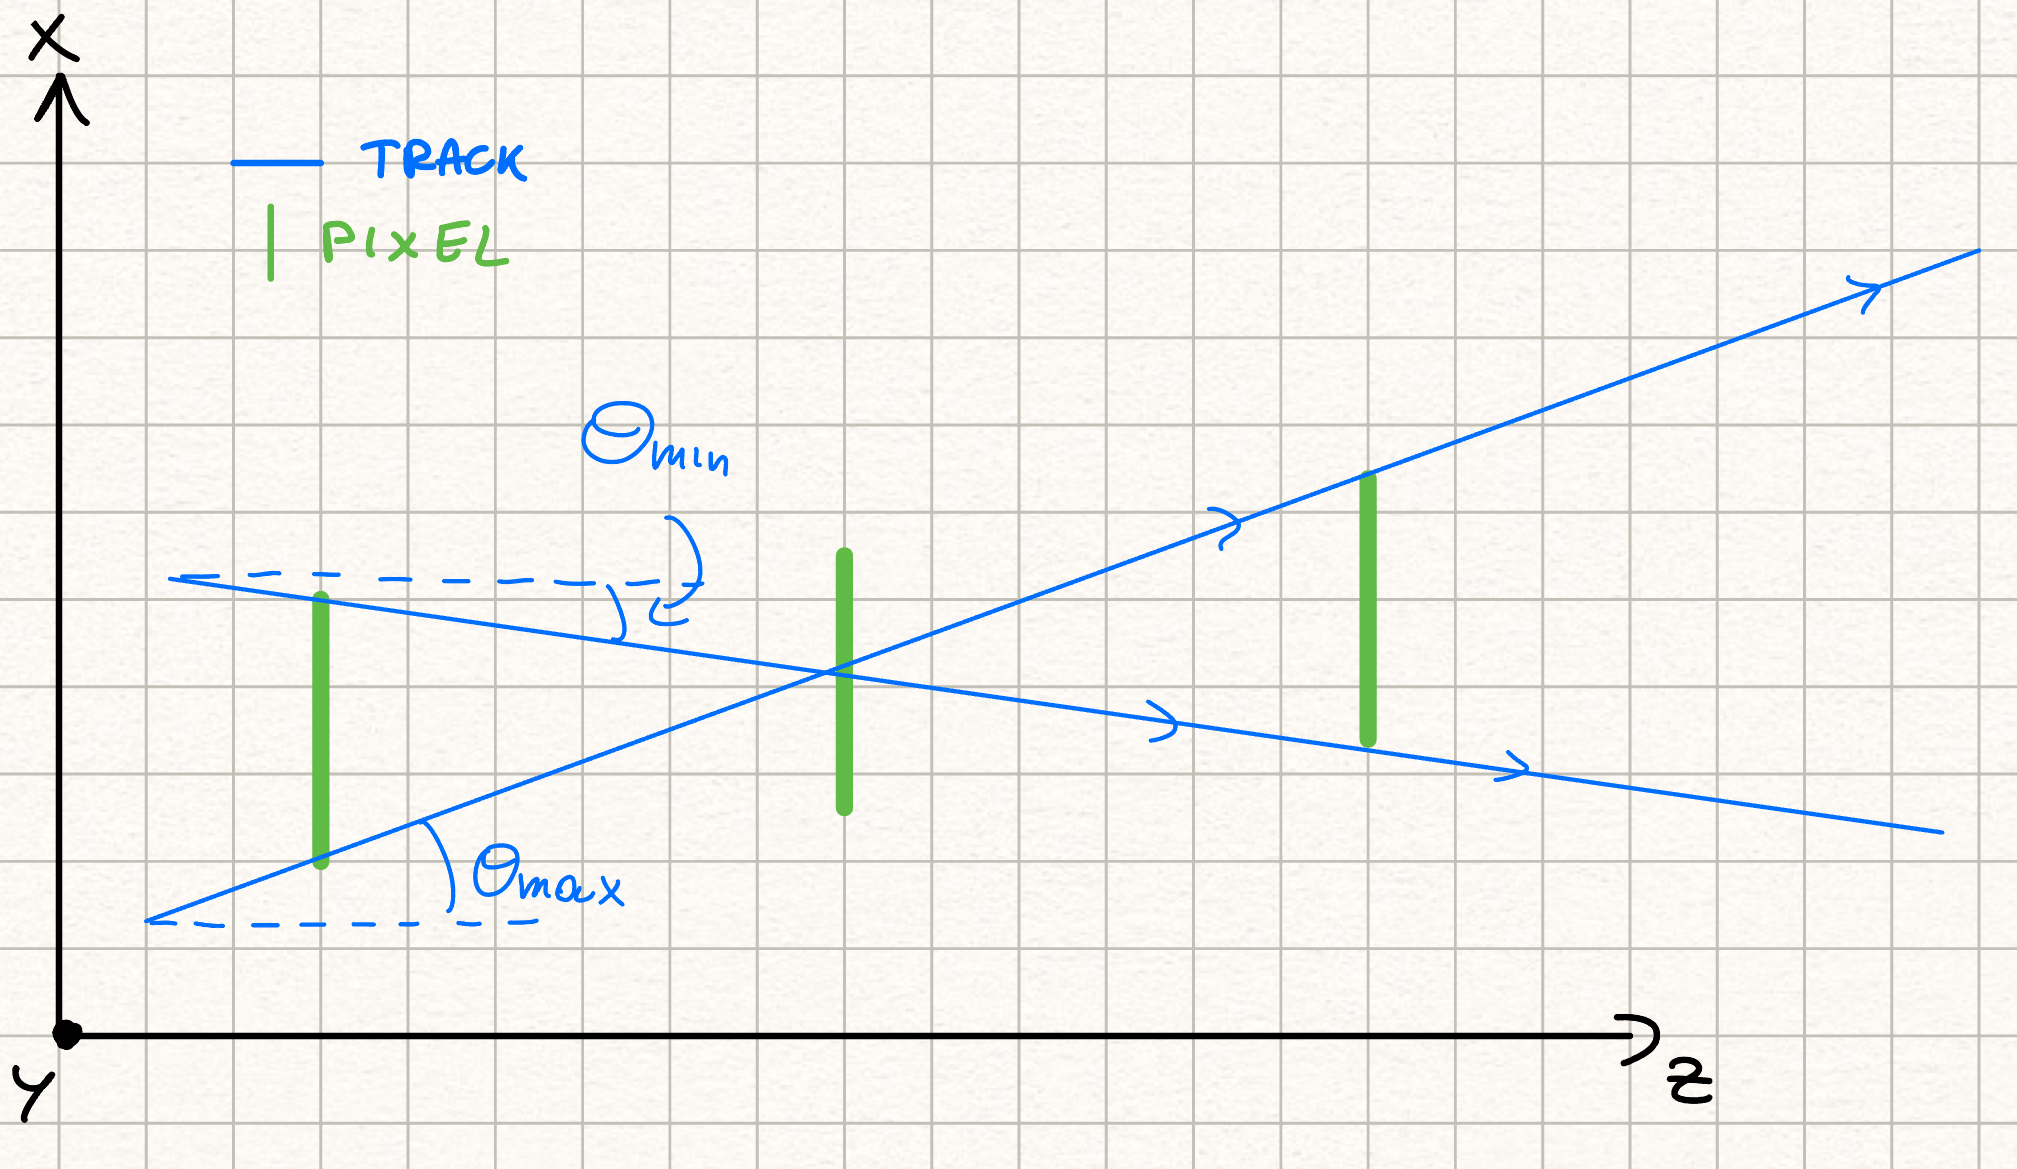 X
TRACK
PIXEL
Θmin
θmax
Z
Y